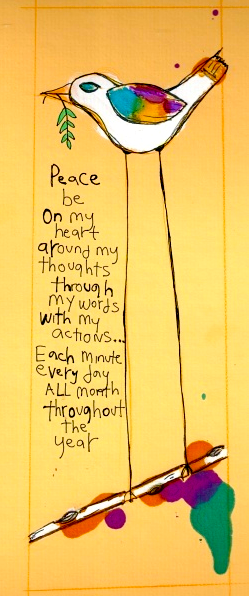 Peace
be
On my
heart
around my
thoughts
through
my words
with my
actions...
Each minute
every day
ALL month
throughout
the
year